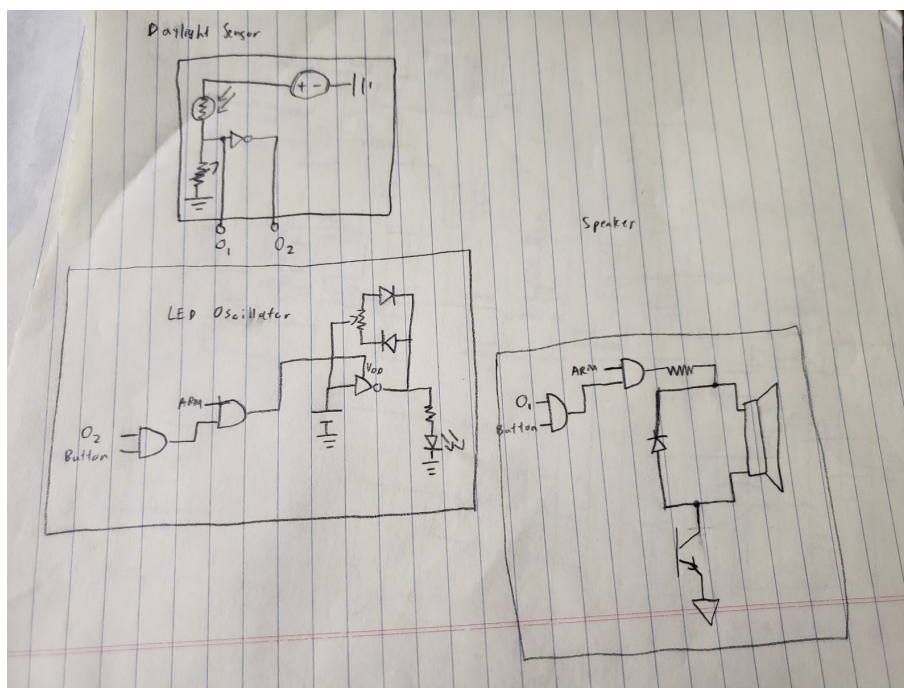 Daylight Sensor
+ -
O1 O2
Speaker
LED Oscillator
VDD
ARM
O2
Button
ARM
O1
Button